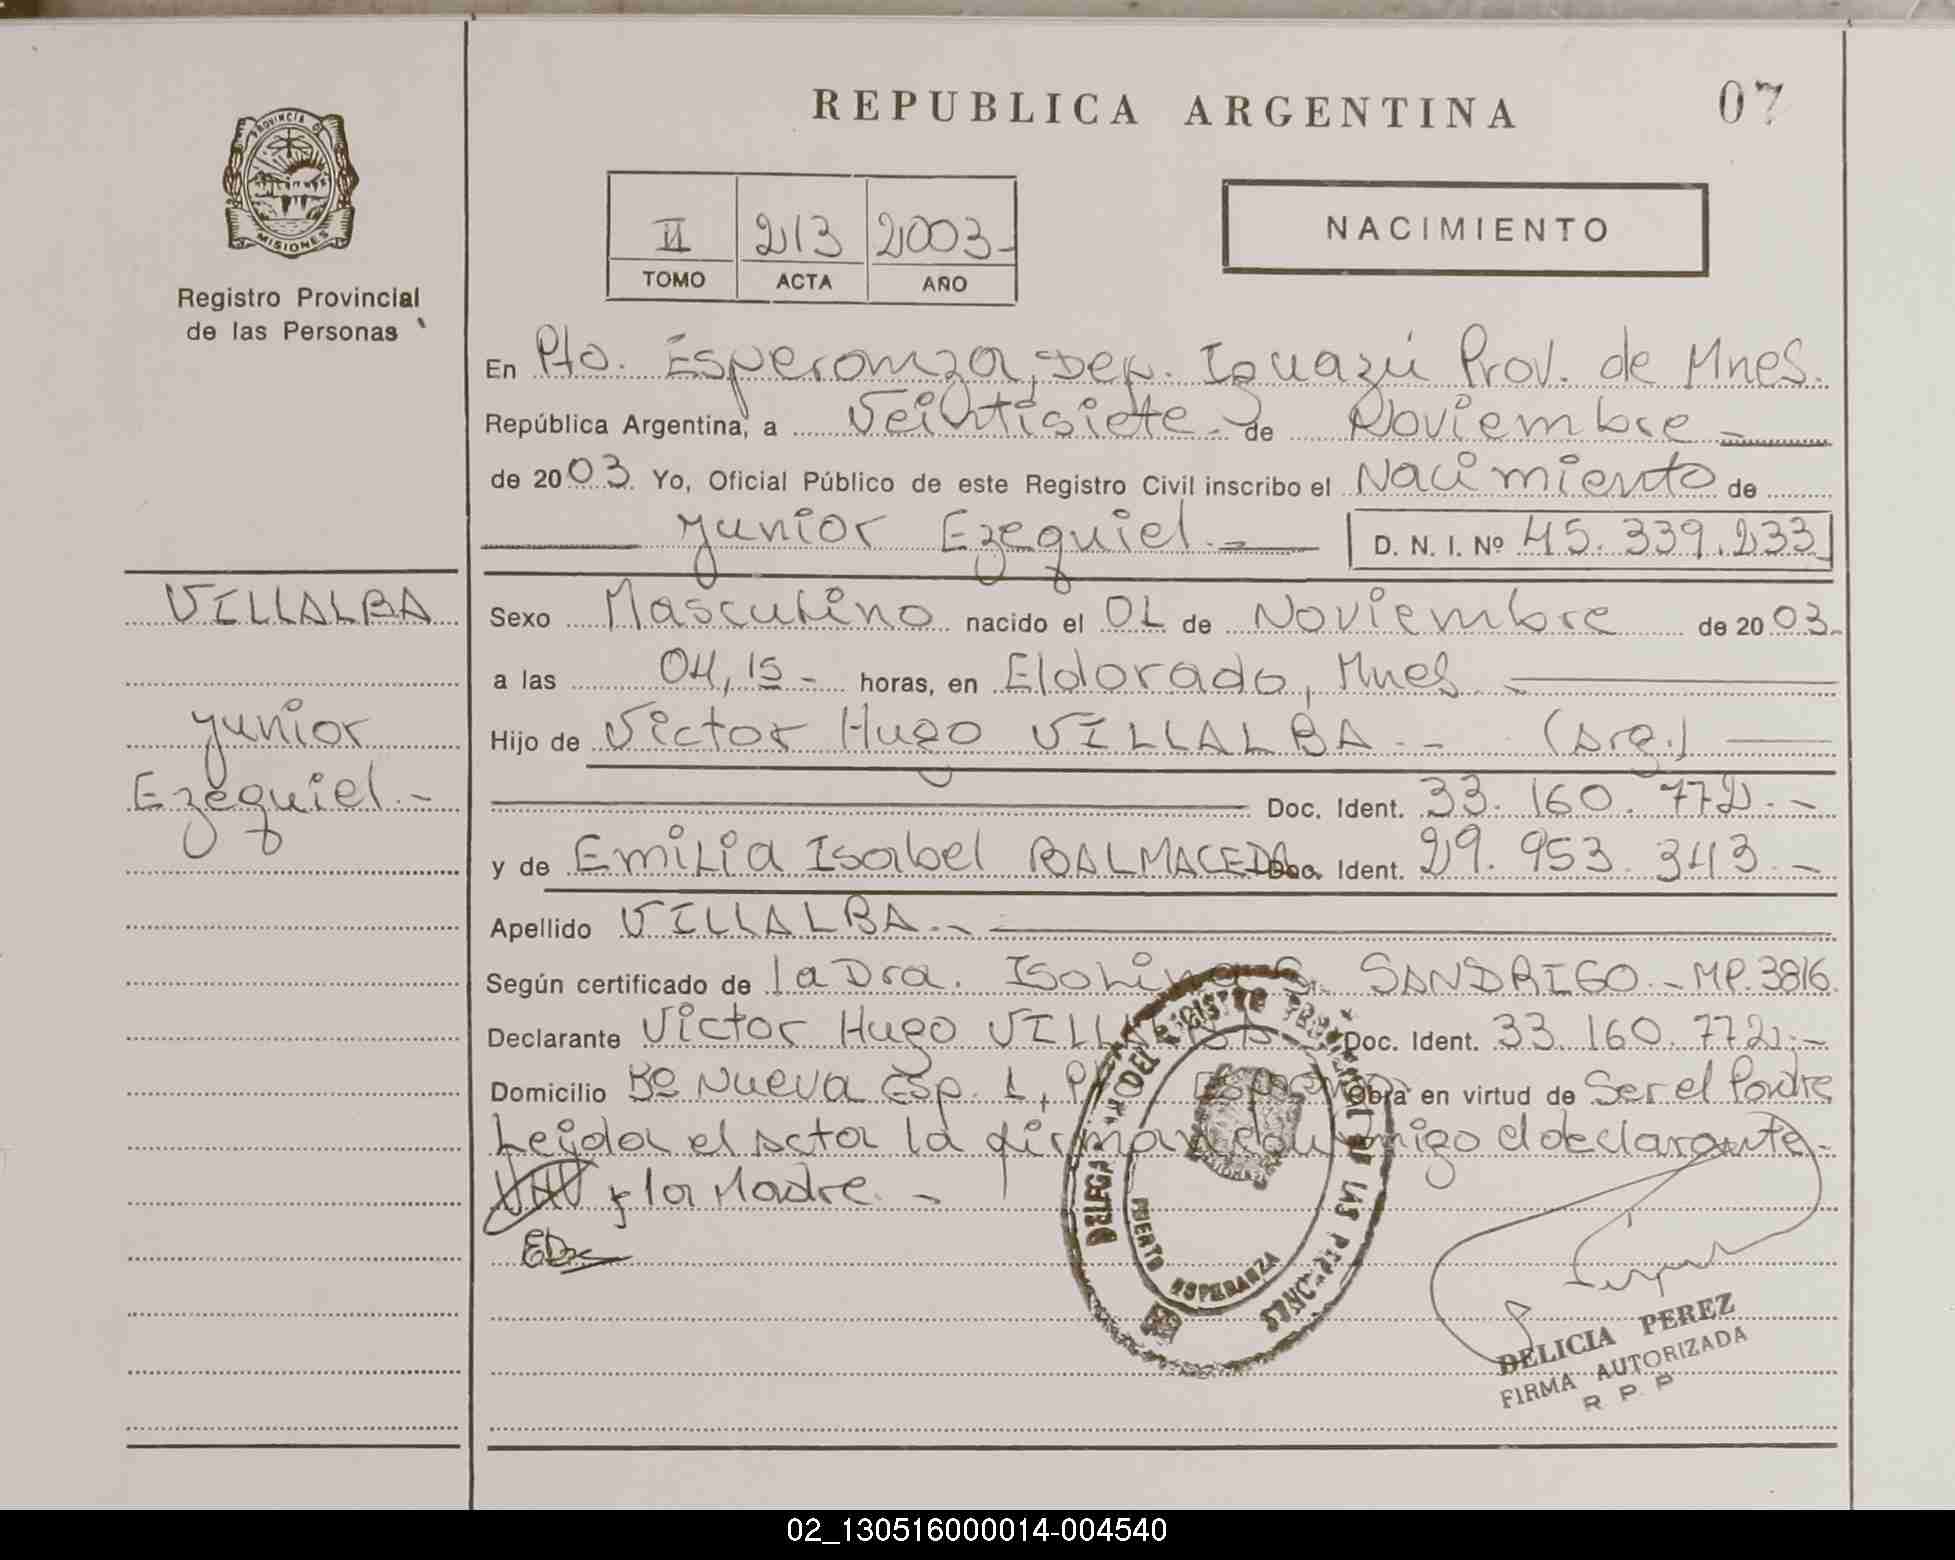 REPUBLICA ARGENTINA
07
PROVINCIA D
MISIONES
Registro Provincial
de las Personas
II 213 2003-
TOMO ACTA AÑO
NACIMIENTO
En Pto. Esperanza, Dep. Iguazú Prov. de Mnes.
República Argentina, a Veintisiete.- de Noviembre -
de 2003. Yo, Oficial Público de este Registro Civil inscribo el Nacimiento de
Yunior Ezequiel.- D. N. I. Nº 45.339.233
VILLALBA
Yunior
Ezequiel.-
Sexo Masculino nacido el 01 de Noviembre de 2003.-
a las 04,15- horas, en Eldorado, Mnes -
Hijo de Victor Hugo VILLALBA.- (Arg.)
Doc. Ident. 33.160.772.-
y de Emilia Isabel BALMACEDA Doc. Ident. 29.953.343.-
Apellido VILLALBA.-
Según certificado de la Dra. Isolina S. SANDRIGO.- MP.3816.
Declarante Victor Hugo VILLALBA Doc. Ident. 33.160.772.-
Domicilio Bº Nueva Esp. 1, Pto Esperanza Obra en virtud de Ser el Padre
Leida el Acta la firman conmigo el declarante-
VHV y la Madre.-
DELEGA DEL REGISTRO PROVINCIAL DE LAS PERSONAS
PUERTO ESPERANZA
DELICIA PEREZ
FIRMA AUTORIZADA
R. P. P
02_130516000014-004540